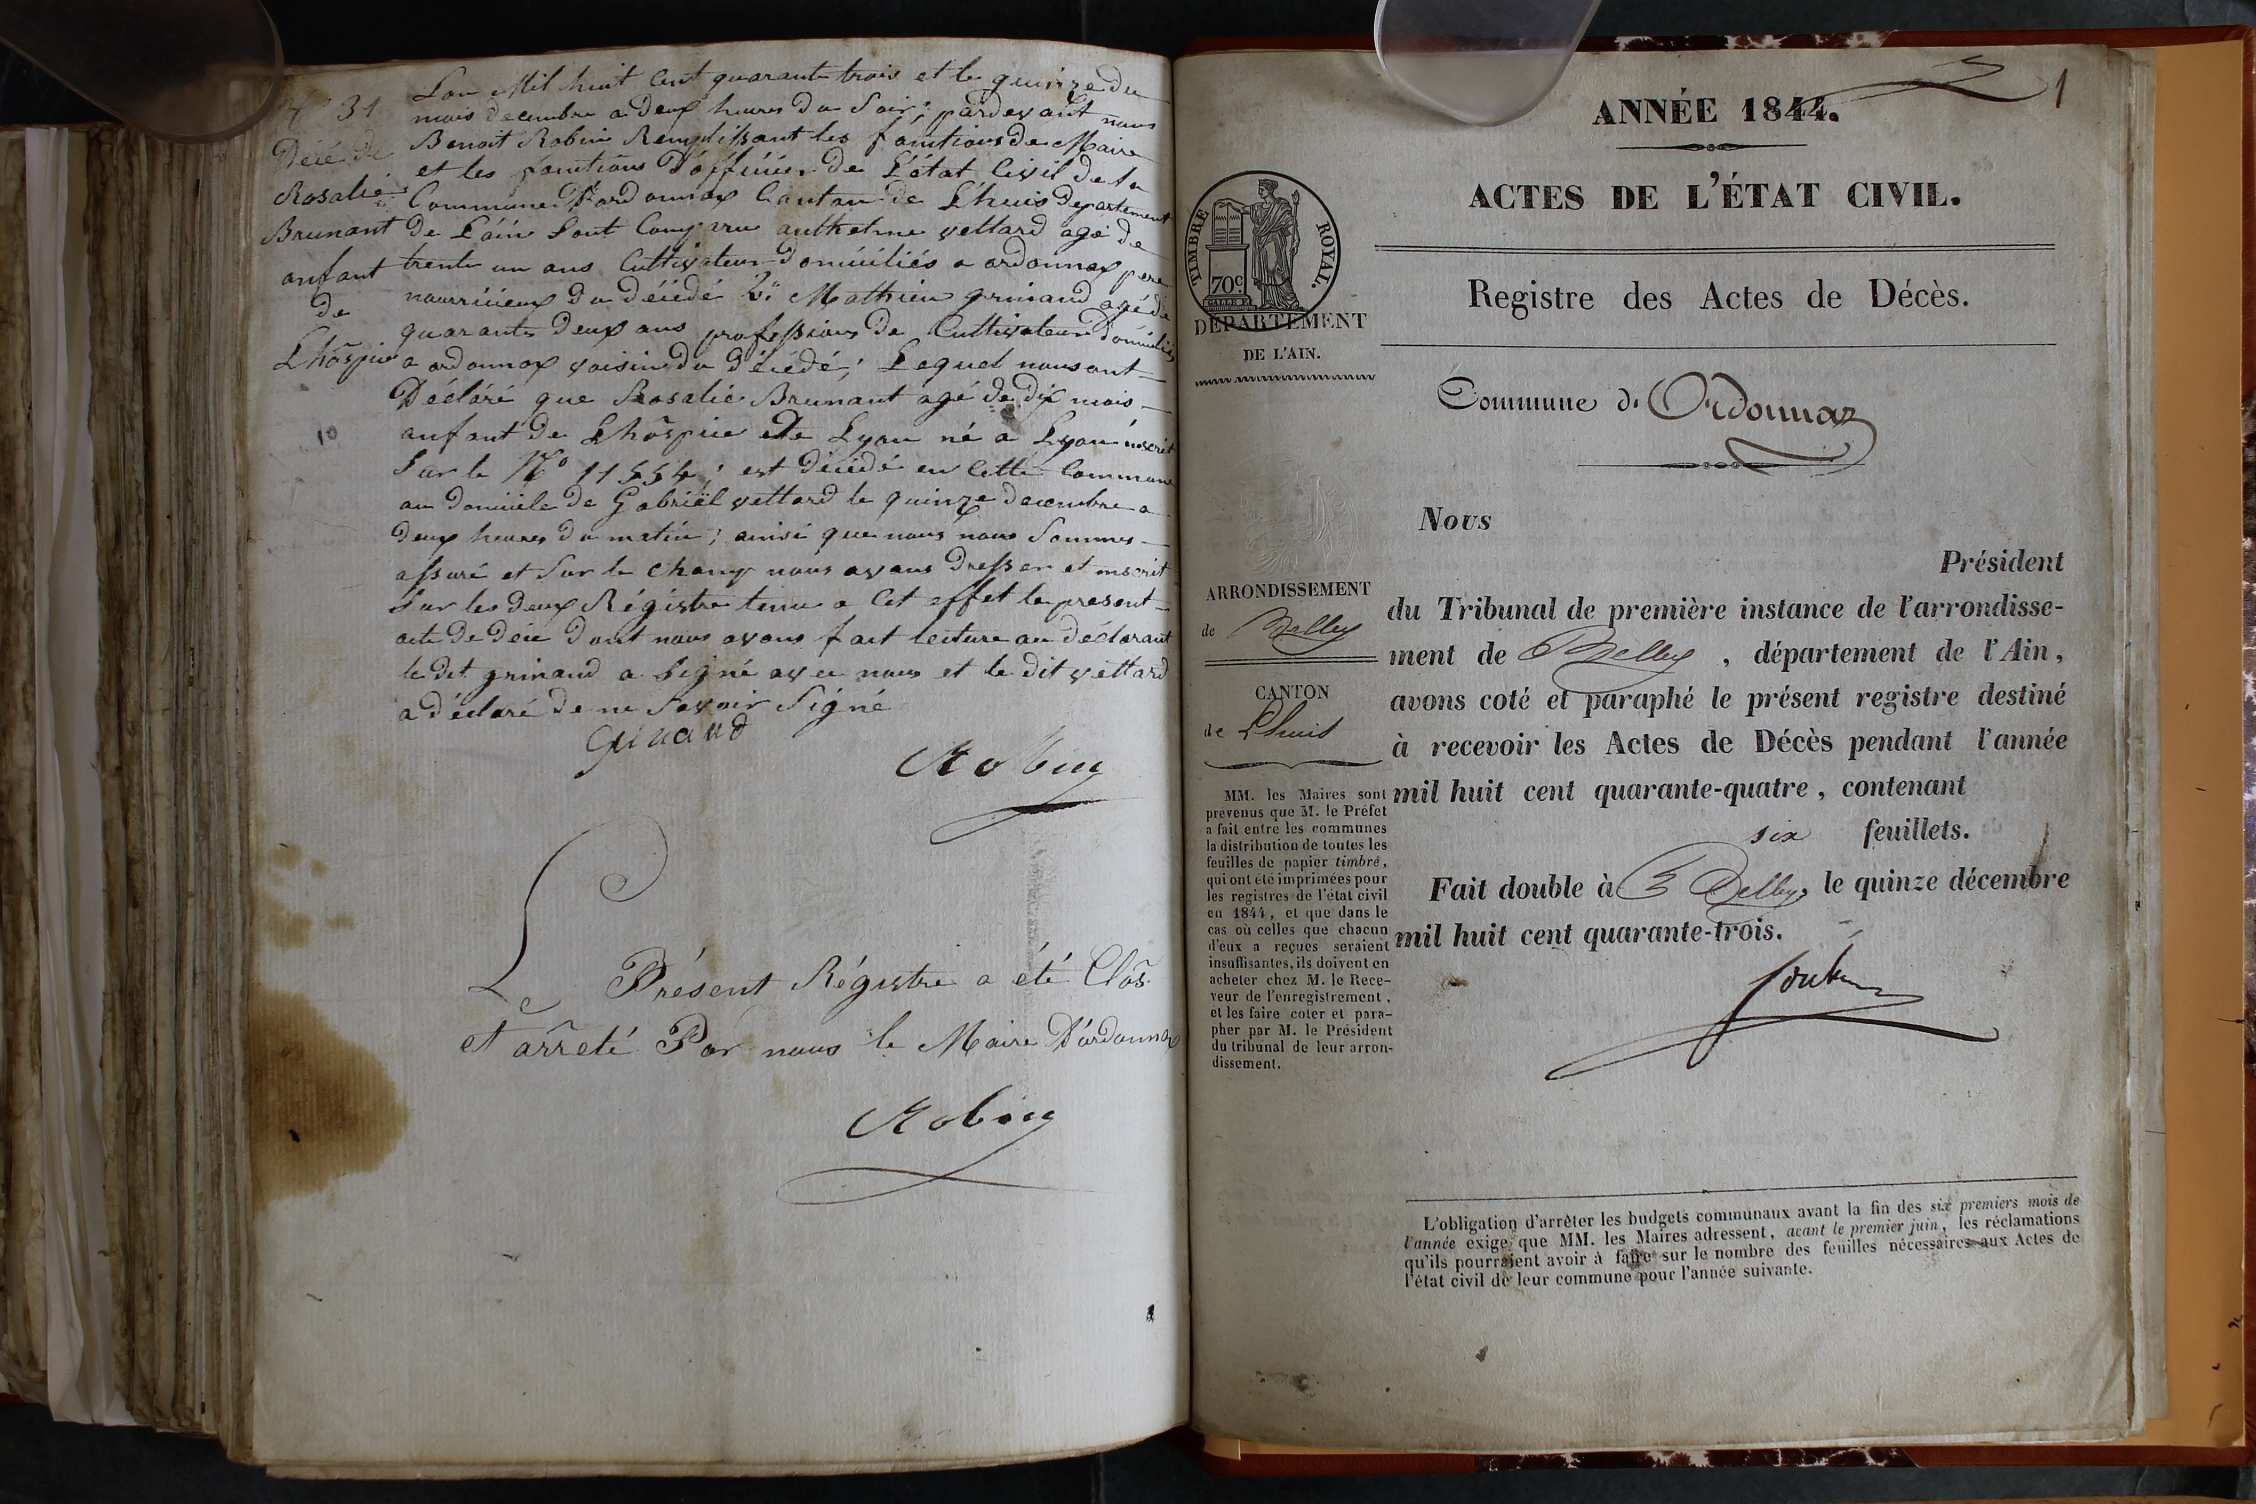 N° 31
Décé de
Rosalie
Brunant
anfant
de
Lhôspice
10
Lan Mil huit Cent quarante trois et le quinze du
mois decembre a deux heures du Soir; pardevant nous
Benoit Robin Remplissant les fonctions de Maire
et les fonctions D'officier de L'état Civil de la
Commune D'ordonnax Canton de Lhuis departement
de L'ain Sont Comparu anthelme vettard agé de
trente un ans Cultivateur domiciliés a ordonnax pere
nourricieux du décédé 2° Mathieu grinand agé de
quarante deux ans profession de Cultivateur domiciliés
a ordonnax voisin du décédé; Lequel nous ont
Déclaré que Rosalie Brunant agé de dix mois
anfant de Lhôspice de Lyon né a Lyon inscrit
Sur le N° 11554; est décédé en Cette Commune
au domicile de Gabriel vettard le quinze decembre a
deux heures du matin; ainsi que nous nous Sommes
assuré et Sur le Champ nous avons dresser et inscrit
Sur les deux Régistre tenu a Cet effet le present
acte de déce dont nous avons fait lecture au déclarant
le dit grinand a Signé avec nous et le dit vettard
a déclaré de ne Savoir Signé
Grinand
Robin
Le Présent Régistre a été Clôs
et arrêté Par nous le Maire D'ordonnax
Robin
1
ANNÉE 1844.
ACTES DE L'ÉTAT CIVIL.
Registre des Actes de Décès.
TIMBRE ROYAL.
70c.
DÉPARTEMENT
DE L'AIN.
Commune d'Ordonnaz
Nous
Président
ARRONDISSEMENT
de Belley
CANTON
de Lhuis
du Tribunal de première instance de l'arrondisse-
ment de Belley, département de l'Ain,
avons coté et paraphé le présent registre destiné
à recevoir les Actes de Décès pendant l'année
mil huit cent quarante-quatre, contenant
six feuillets.
Fait double à Belley, le quinze décembre
mil huit cent quarante-trois.
MM. les Maires sont
prévenus que M. le Préfet
a fait entre les communes
la distribution de toutes les
feuilles de papier timbré,
qui ont été imprimées pour
les registres de l'état civil
en 1844, et que dans le
cas où celles que chacun
d'eux a reçues seraient
insuffisantes, ils doivent en
acheter chez M. le Rece-
veur de l'enregistrement,
et les faire coter et para-
pher par M. le Président
du tribunal de leur arron-
dissement.
L'obligation d'arrêter les budgets communaux avant la fin des six premiers mois de
l'année exige que MM. les Maires adressent, avant le premier juin, les réclamations
qu'ils pourraient avoir à faire sur le nombre des feuilles nécessaires aux Actes de
l'état civil de leur commune pour l'année suivante.